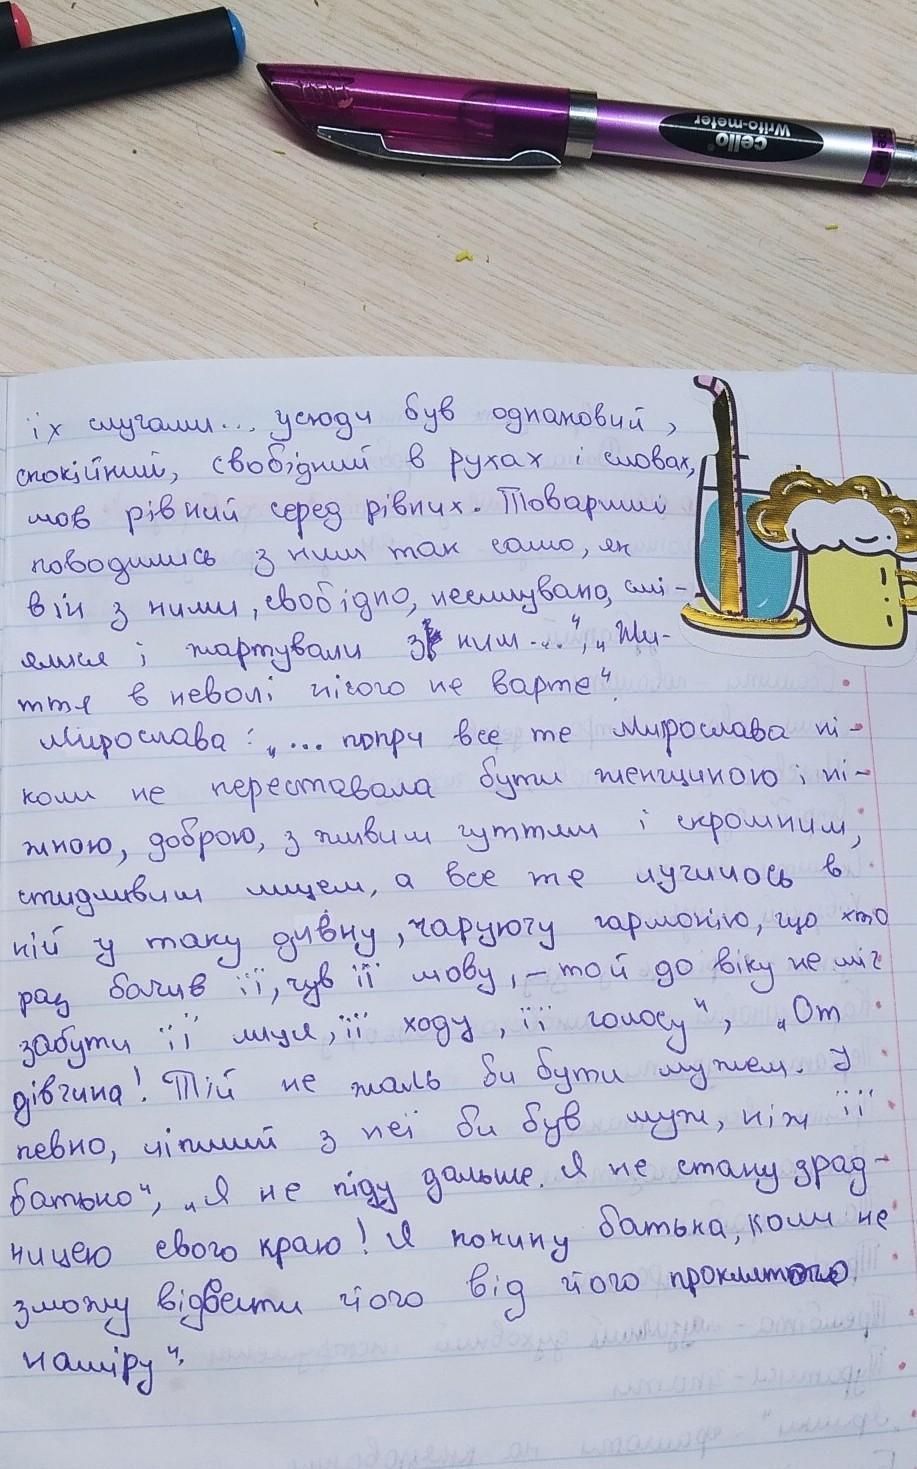 cello
Writo-meter
їх слугами... усюди був однаковий,
спокійний, свобідний в рухах і словах,
мов рівний серед рівних. Товариші
поводились з ним так само, як
він з ними, свобідно, несилувано, смі-
ялися і жартували з ним...", „Жи-
ття в неволі нічого не варте".
Мирослава: „... попри все те Мирослава ні-
коли не переставала бути женщиною і ні-
жною, доброю, з живим чуттям і скромним,
стидливим лицем, а все те лучилось в
ній у таку дивну, чаруючу гармонію, що хто
раз бачив її, чув її мову, – той до віку не міг
забути її лиця, її ходу, її голосу", „От
дівчина! Тій не жаль би бути мужем. У
певно, ліпший з неї би був муж, ніж її
батько", „Я не піду дальше. Я не стану зрад-
ницею свого краю! Я покину батька, коли не
зможу відвести його від його проклятого
наміру".